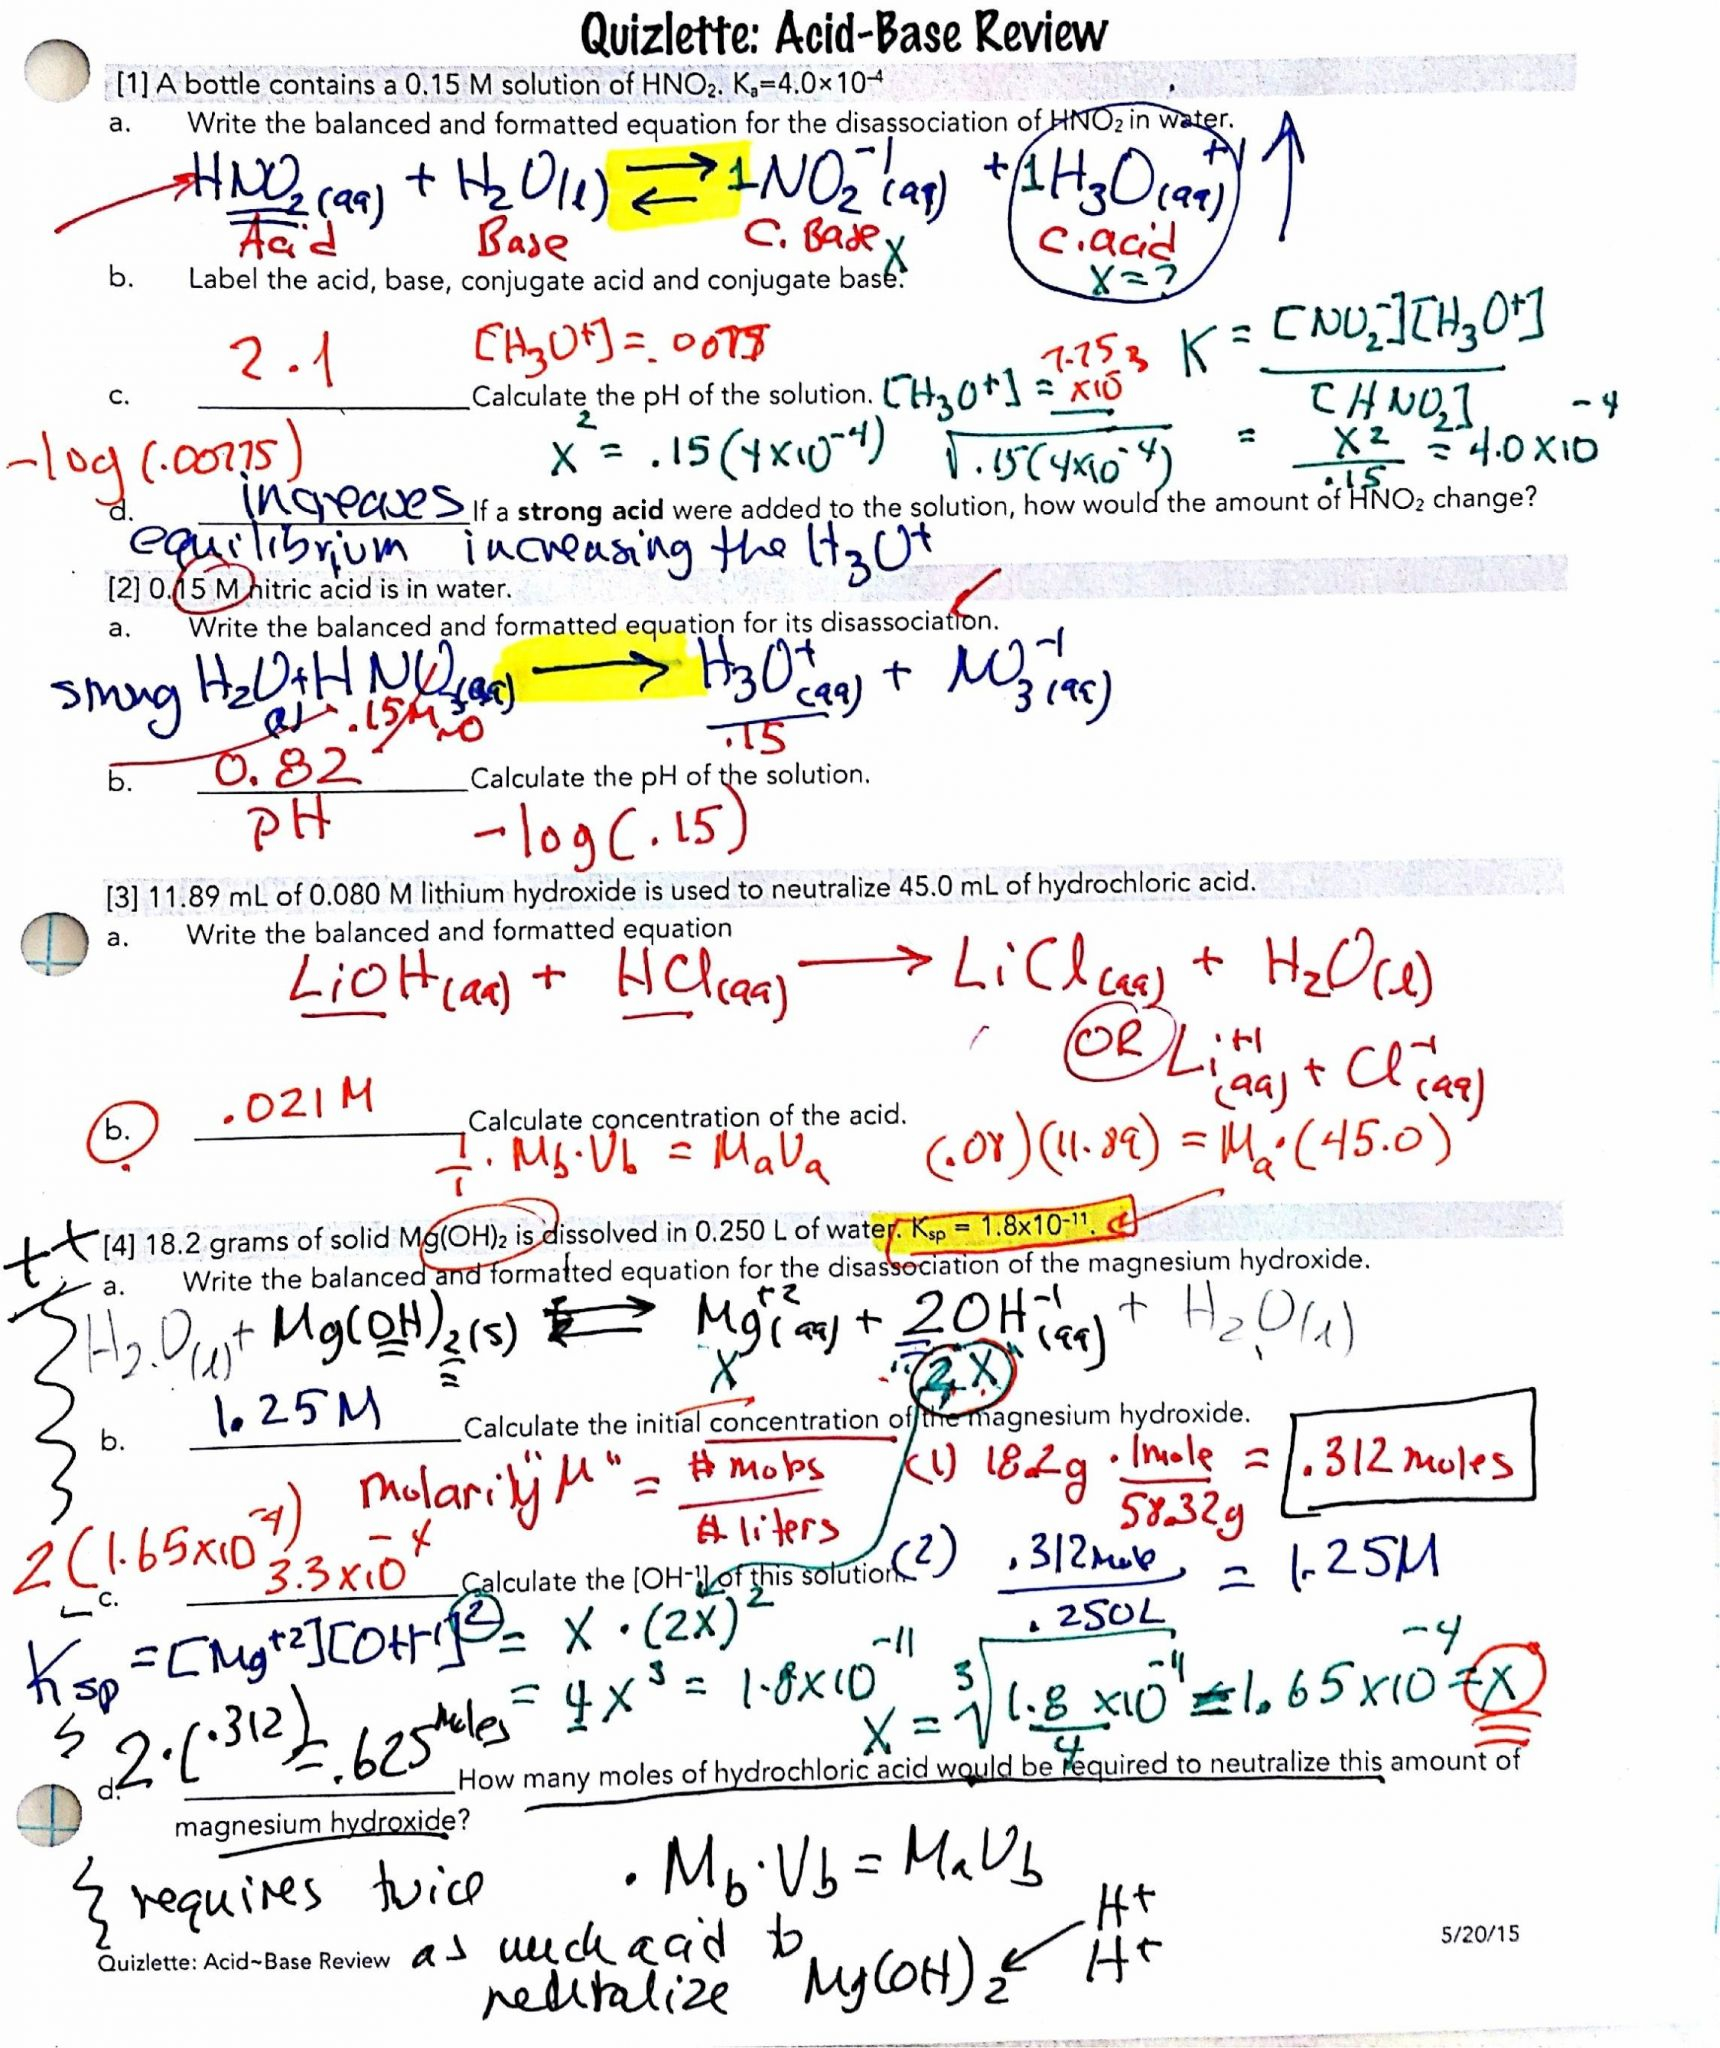 Quizlette: Acid-Base Review
[1] A bottle contains a 0.15 M solution of HNO₂. Kₐ=4.0×10⁻⁴
a. Write the balanced and formatted equation for the disassociation of HNO₂ in water.
HNO₂(aq) + H₂O(l) ⇌ 1NO₂⁻¹(aq) + 1H₃O⁺¹(aq) ↑
Acid Base C. Base C. acid
X X=?
b. Label the acid, base, conjugate acid and conjugate base.
K = [NO₂⁻][H₃O⁺]
[HNO₂]
2.1 [H₃O⁺] = .00775
c. Calculate the pH of the solution. [H₃O⁺] = 7.75 ×10⁻³
-log(.00775) x² = .15(4×10⁻⁴) √.15(4×10⁻⁴) = X²/.15 = 4.0×10⁻⁴
d. increases If a strong acid were added to the solution, how would the amount of HNO₂ change?
equilibrium increasing the H₃O⁺
[2] 0.15 M nitric acid is in water.
a. Write the balanced and formatted equation for its disassociation.
strong H₂O + HNO₃(aq) → H₃O⁺(aq) + NO₃⁻¹(aq)
(l) .15M → 0 .15
b. 0.82 Calculate the pH of the solution.
pH -log(.15)
[3] 11.89 mL of 0.080 M lithium hydroxide is used to neutralize 45.0 mL of hydrochloric acid.
a. Write the balanced and formatted equation
LiOH(aq) + HCl(aq) → LiCl(aq) + H₂O(l)
OR Li⁺¹(aq) + Cl⁻¹(aq)
b. .021 M Calculate concentration of the acid.
1/1 · Mb·Vb = MaVa (.08)(11.89) = Ma·(45.0)
++ [4] 18.2 grams of solid Mg(OH)₂ is dissolved in 0.250 L of water. Ksp = 1.8x10⁻¹¹.
a. Write the balanced and formatted equation for the disassociation of the magnesium hydroxide.
H₂O(l) + Mg(OH)₂(s) ⇌ Mg⁺²(aq) + 2OH⁻¹(aq) + H₂O(l)
X 2X
b. 1.25M Calculate the initial concentration of the magnesium hydroxide.
Molarity "M" = # moles / # liters (1) 18.2g · 1mole/58.32g = .312 moles
2(1.65×10⁻⁴) (2) .312 mole / .250L = 1.25M
c. 3.3×10⁻⁴ Calculate the [OH-¹] of this solution.
Ksp = [Mg⁺²][OH⁻¹]² = X·(2X)²
= 4X³ = 1.8×10⁻¹¹ X = ³√1.8×10⁻¹¹/4 = 1.65×10⁻⁴ = X
2·(.312) = .625 moles
d. How many moles of hydrochloric acid would be required to neutralize this amount of
magnesium hydroxide?
requires twice · Mb·Vb = MaVb
as much acid to
neutralize Mg(OH)₂
H+
H+
Quizlette: Acid~Base Review
5/20/15